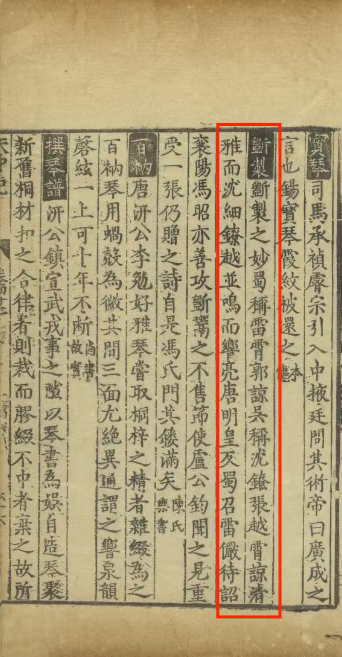 寶琴司馬承禎睿宗引入中掖廷問其術帝曰廣成之
言也錫寶琴霞紋帔還之本傳
斲製斲製之妙蜀稱雷霄郭諒吳稱沈鐐張越霄諒清
雅而沈細鐐越並鳴而響亮唐明皇反蜀召雷儼待詔
襄陽馮昭亦善攻斲鬻之不售節使盧公鈞聞之見重
受一張仍贈之詩自是馮氏門其鏤滿矣陳氏樂書
百衲唐汧公李勉好雅琴嘗取桐梓之精者雜綴為之
百衲琴用蝸殼為徽其間三面尤絕異通謂之響泉韻
磬絃一上可十年不斷尚書故實
撰琴譜汧公鎮宣武戎事之隙以琴書為娛自造琴聚
新舊桐材扣之合律者則裁而膠綴不中者棄之故所